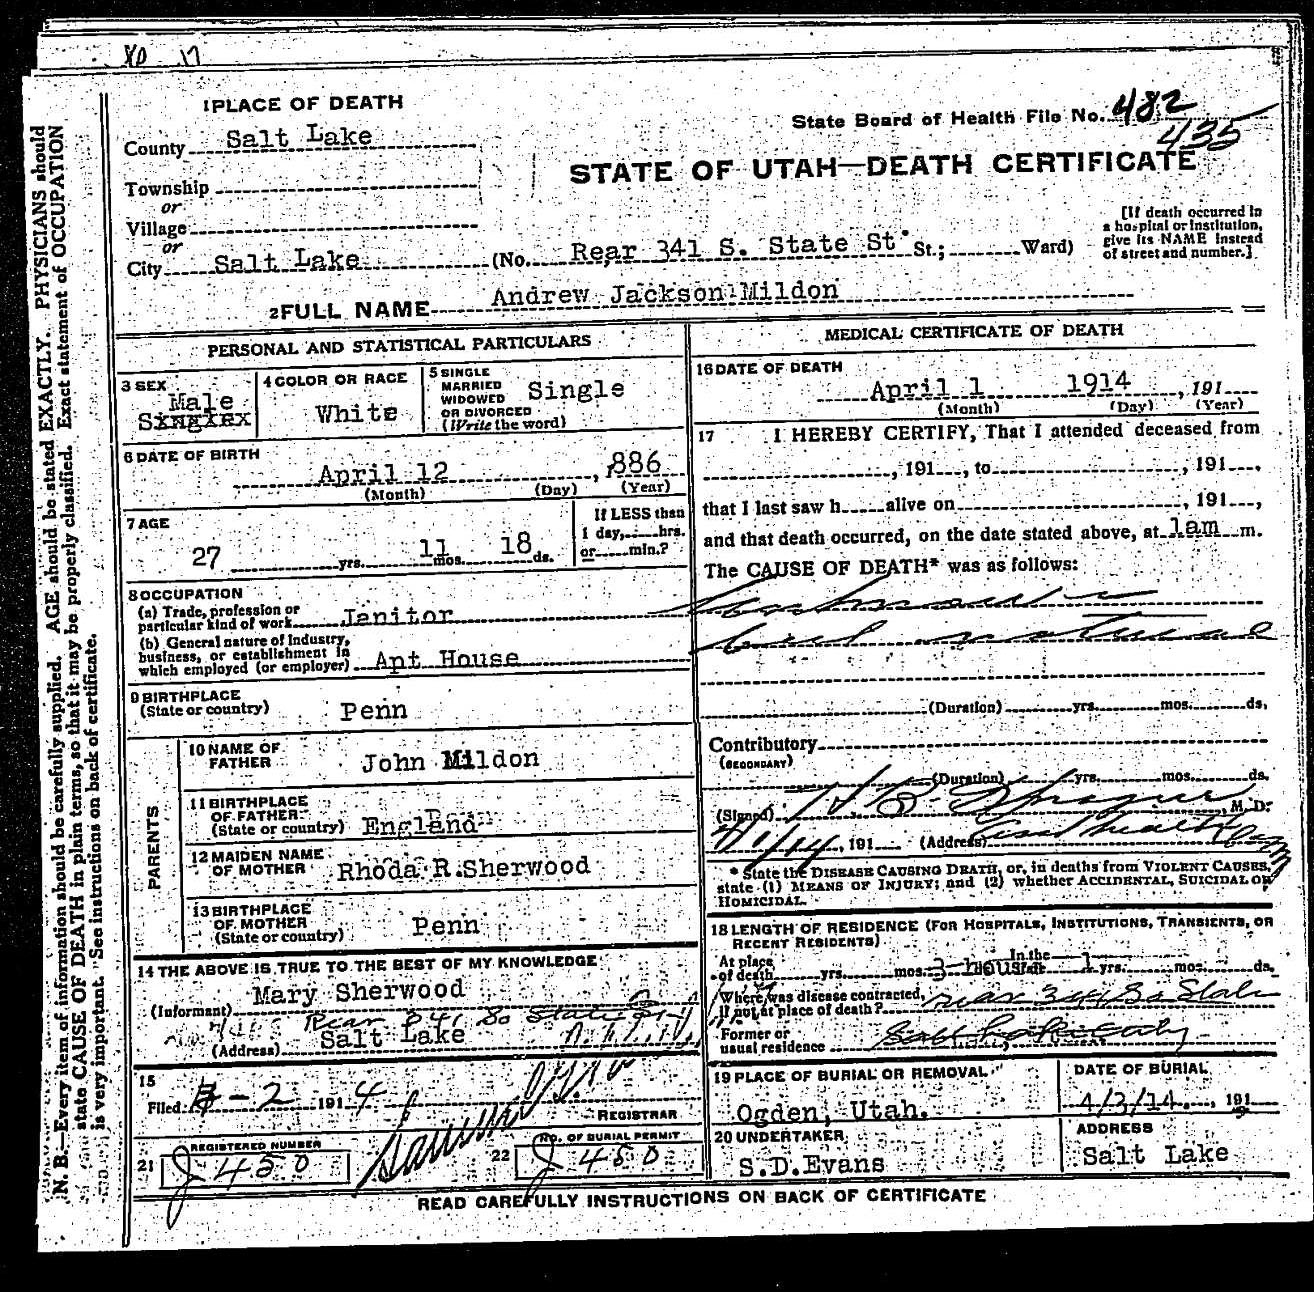 1 PLACE OF DEATH
County Salt Lake
Township
or
Village
or
City Salt Lake (No. Rear 341 S. State St. St.; Ward)
State Board of Health File No. 482
435
STATE OF UTAH—DEATH CERTIFICATE
[If death occurred in
a hospital or institution,
give its NAME instead
of street and number.]
2 FULL NAME Andrew Jackson Mildon
PERSONAL AND STATISTICAL PARTICULARS
3 SEX
Male
4 COLOR OR RACE
White
5 SINGLE
MARRIED
WIDOWED
OR DIVORCED
(Write the word)
Single
6 DATE OF BIRTH
April 12, 1886
(Month) (Day) (Year)
7 AGE
27 yrs. 11 mos. 18 ds.
If LESS than
1 day, hrs.
or min.?
8 OCCUPATION
(a) Trade, profession or
particular kind of work Janitor
(b) General nature of Industry,
business, or establishment in
which employed (or employer) Apt House
9 BIRTHPLACE
(State or country) Penn
PARENTS
10 NAME OF
FATHER John Mildon
11 BIRTHPLACE
OF FATHER
(State or country) England
12 MAIDEN NAME
OF MOTHER Rhoda R. Sherwood
13 BIRTHPLACE
OF MOTHER
(State or country) Penn
14 THE ABOVE IS TRUE TO THE BEST OF MY KNOWLEDGE
(Informant) Mary Sherwood
Rear 341 So State St
(Address) Salt Lake
15
Filed 4-2 1914
REGISTRAR
21 REGISTERED NUMBER
J 450
22 NO. OF BURIAL PERMIT
J 450
MEDICAL CERTIFICATE OF DEATH
16 DATE OF DEATH
April 1 1914, 191
(Month) (Day) (Year)
17 I HEREBY CERTIFY, That I attended deceased from
, 191 , to , 191 ,
that I last saw h alive on , 191 ,
and that death occurred, on the date stated above, at 1am m.
The CAUSE OF DEATH* was as follows:
(Duration) yrs. mos. ds.
Contributory
(SECONDARY)
(Duration) yrs. mos. ds.
(Signed) , M.D.
4/1/14, 191 (Address)
* State the DISEASE CAUSING DEATH, or, in deaths from VIOLENT CAUSES,
state (1) MEANS OF INJURY; and (2) whether ACCIDENTAL, SUICIDAL OR
HOMICIDAL.
18 LENGTH OF RESIDENCE (FOR HOSPITALS, INSTITUTIONS, TRANSIENTS, OR
RECENT RESIDENTS)
At place
of death yrs. mos. In the 1 yrs. mos. ds.
Where was disease contracted,
If not at place of death? rear 341 So State
Former or
usual residence Salt Lake City
19 PLACE OF BURIAL OR REMOVAL
Ogden, Utah.
DATE OF BURIAL
4/3/14. , 191
20 UNDERTAKER
S.D.Evans
ADDRESS
Salt Lake
READ CAREFULLY INSTRUCTIONS ON BACK OF CERTIFICATE
N. B.—Every item of information should be carefully supplied. AGE should be stated EXACTLY. PHYSICIANS should
state CAUSE OF DEATH in plain terms, so that it may be properly classified. Exact statement of OCCUPATION
is very important. See instructions on back of certificate.